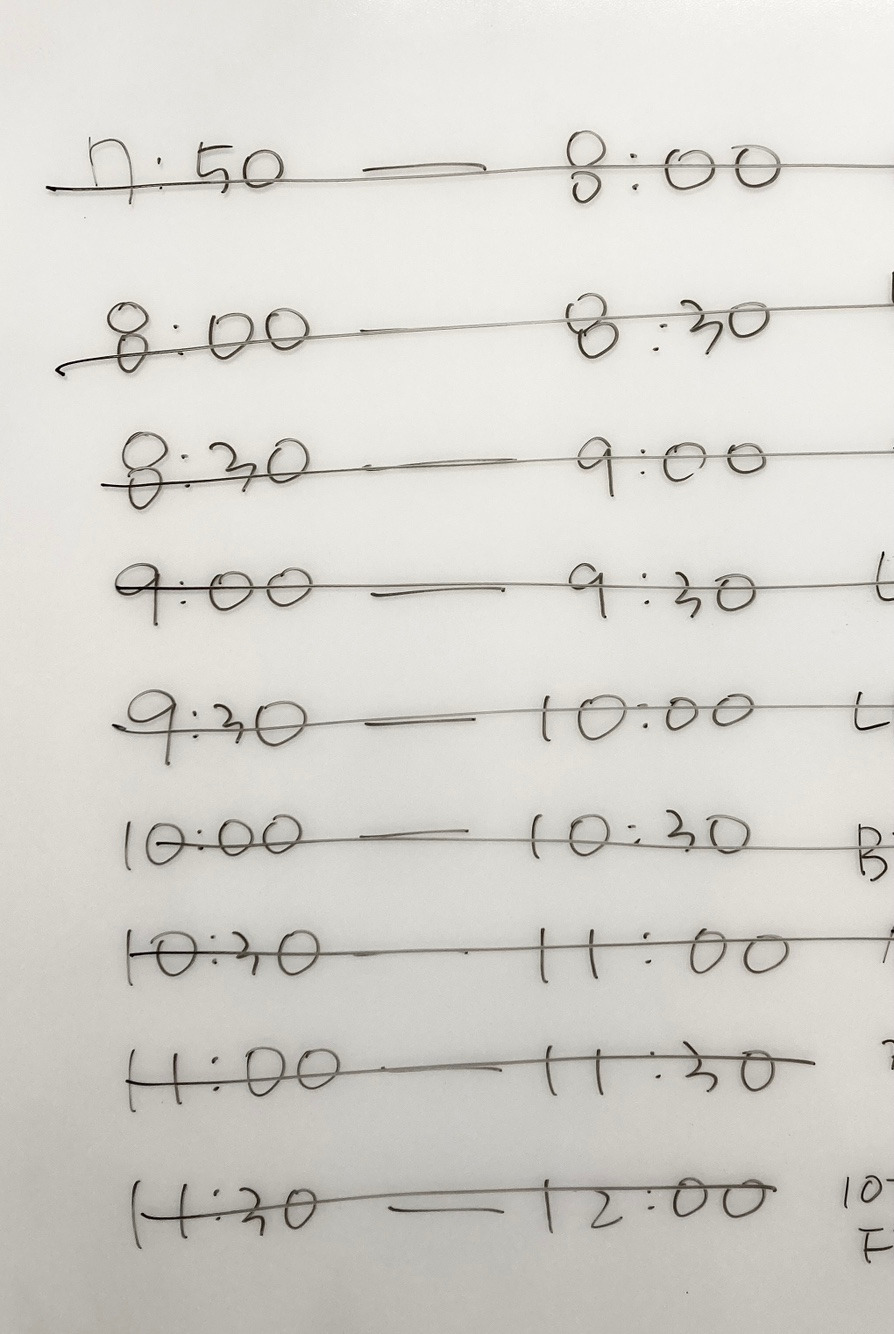 7:50 — 8:00
8:00 — 8:30
8:30 — 9:00
9:00 — 9:30
9:30 — 10:00
10:00 — 10:30
10:30 — 11:00
11:00 — 11:30
11:30 — 12:00